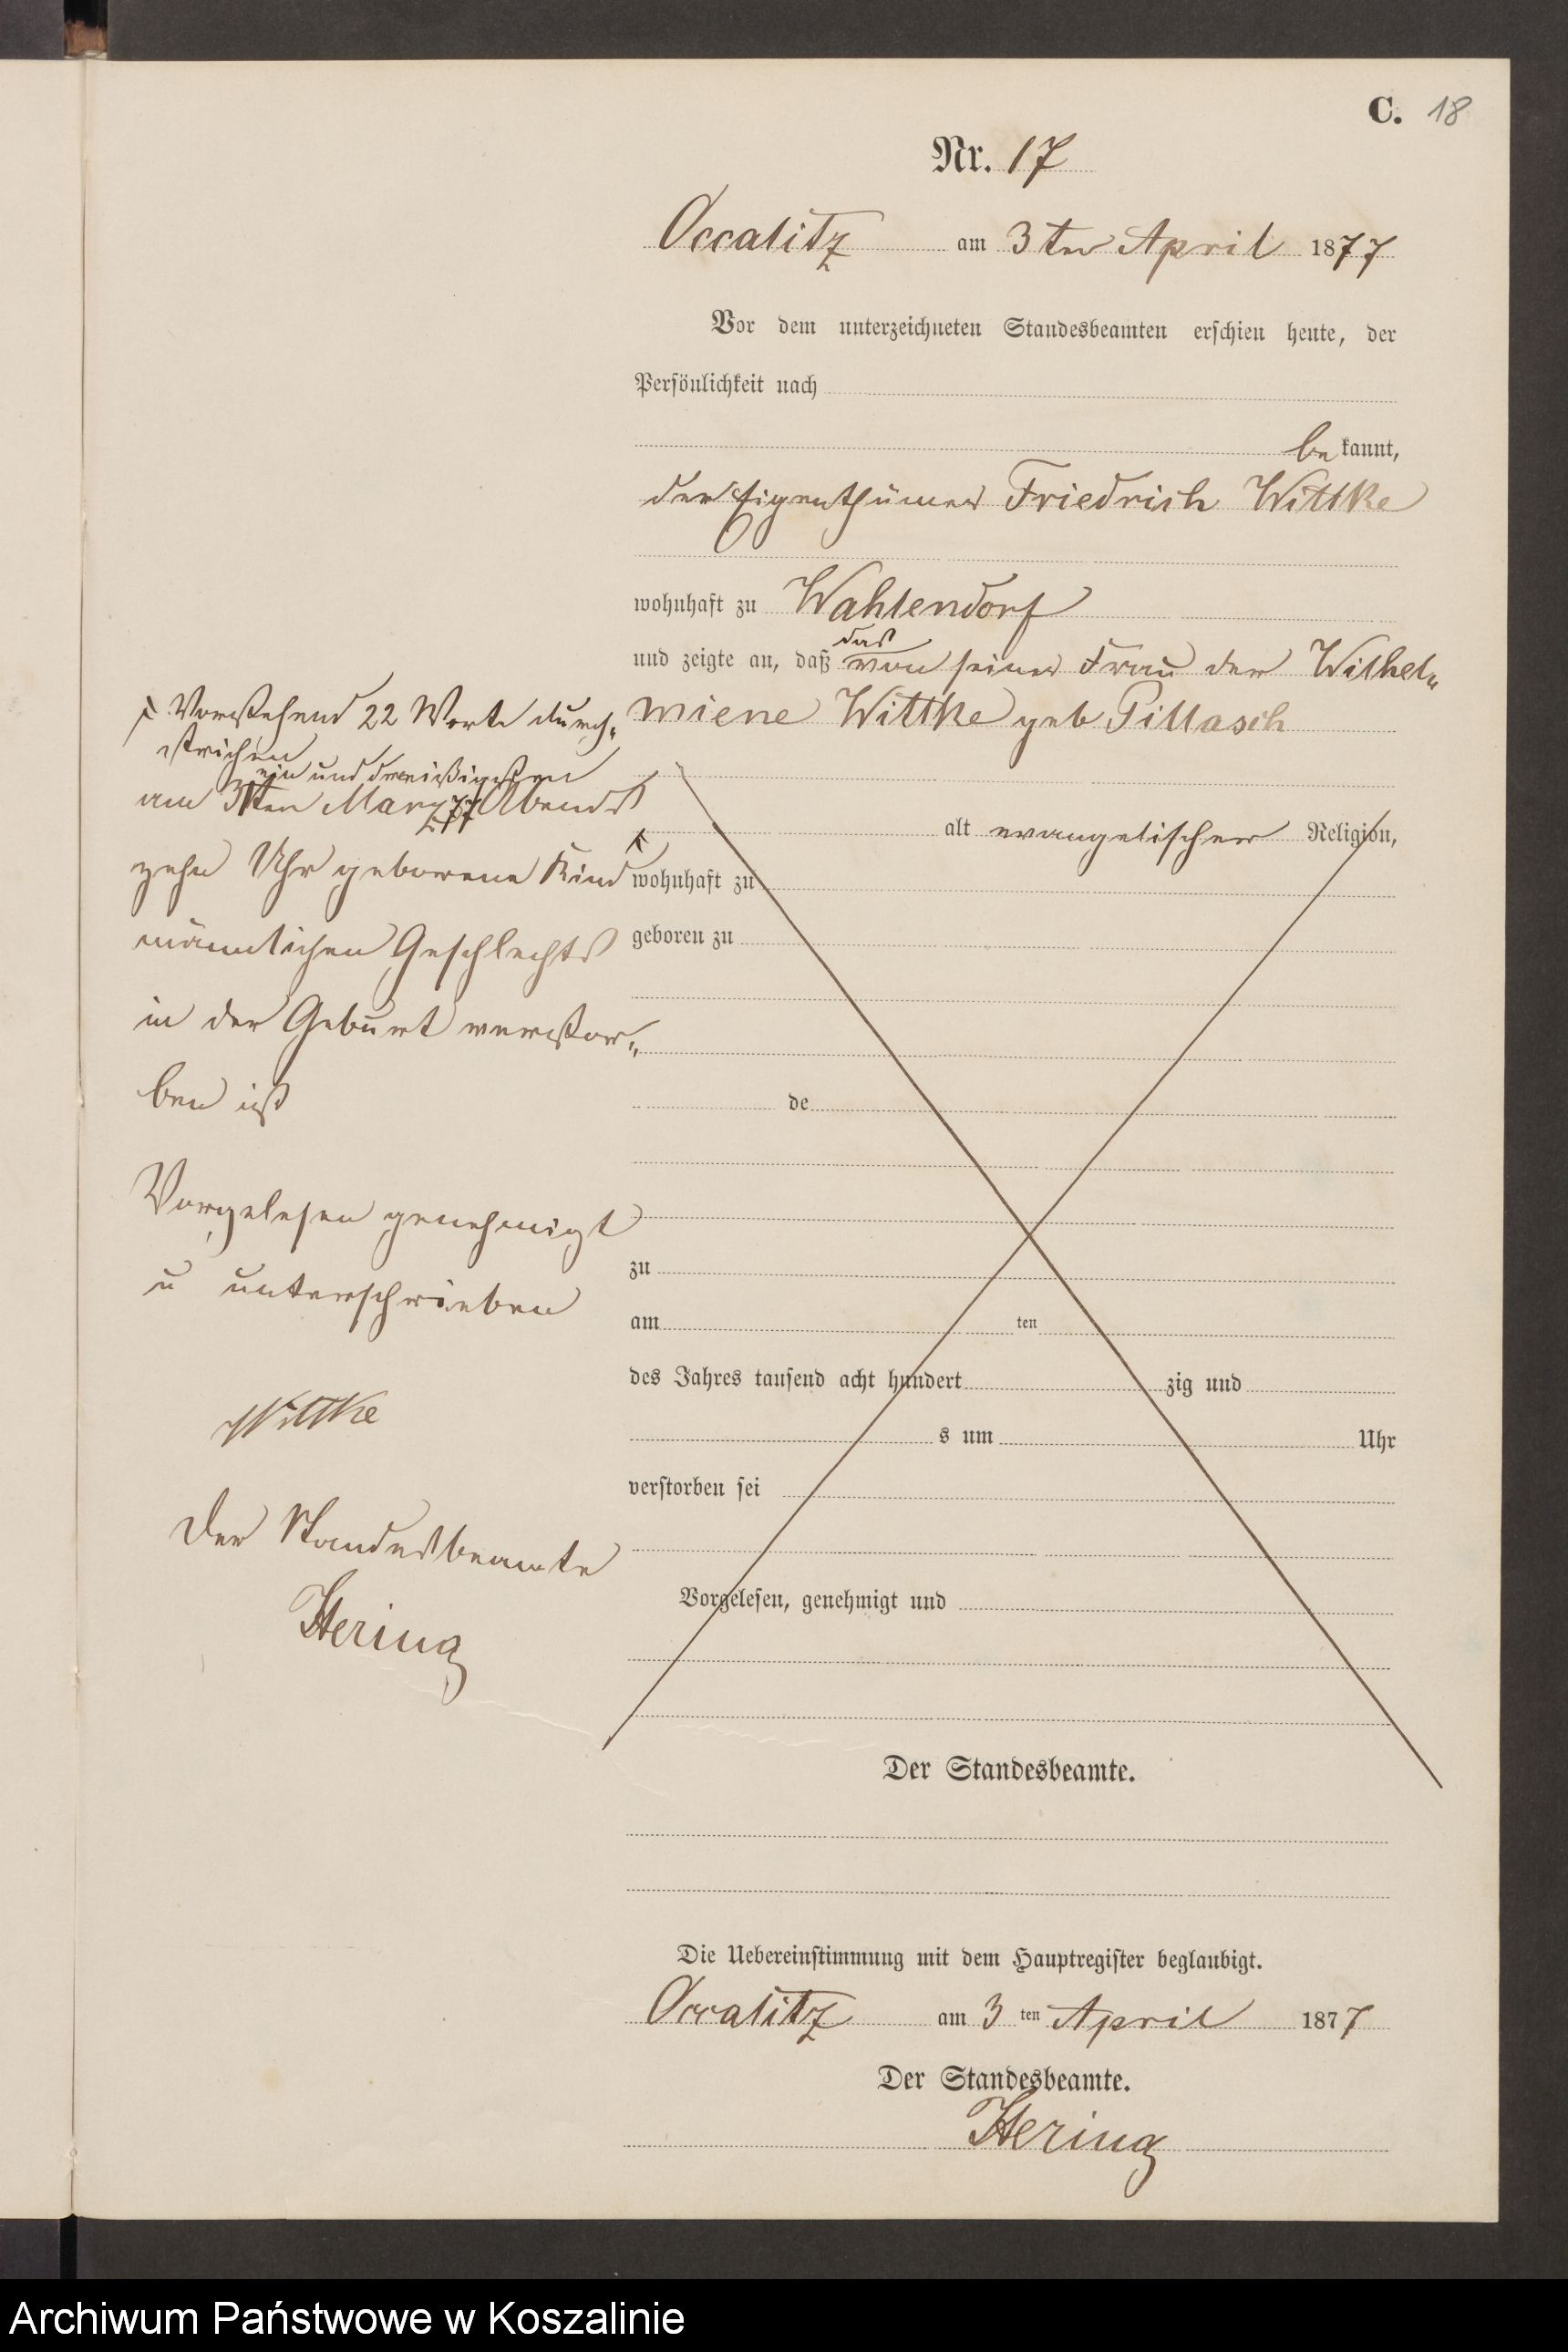 C. 18
Nr. 17
Occalitz am 3ten April 1877
Vor dem unterzeichneten Standesbeamten erschien heute, der
Persönlichkeit nach
bekannt,
der Eigenthümer Friedrich Wittke
wohnhaft zu Wahlendorf
das
und zeigte an, daß von seiner Frau der Wilhel„
miene Wittke geb Pillasch
alt evangelischer Religion,
wohnhaft zu
geboren zu
de
zu
am ten
des Jahres tausend acht hundert zig und
s um Uhr
verstorben sei
Vorgelesen, genehmigt und
Der Standesbeamte.
Vorstehend 22 Worte durch„
strichen
ein und dreißigsten
am 31ten März 77 Abends
zehn Uhr geborene Kind
männlichen Geschlechts
in der Geburt verstor„
ben ist
Vorgelesen genehmigt
u unterschrieben
Wittke
Der Standesbeamte
Hering
Die Uebereinstimmung mit dem Hauptregister beglaubigt.
Occalitz am 3 ten April 1877
Der Standesbeamte.
Hering
Archiwum Państwowe w Koszalinie